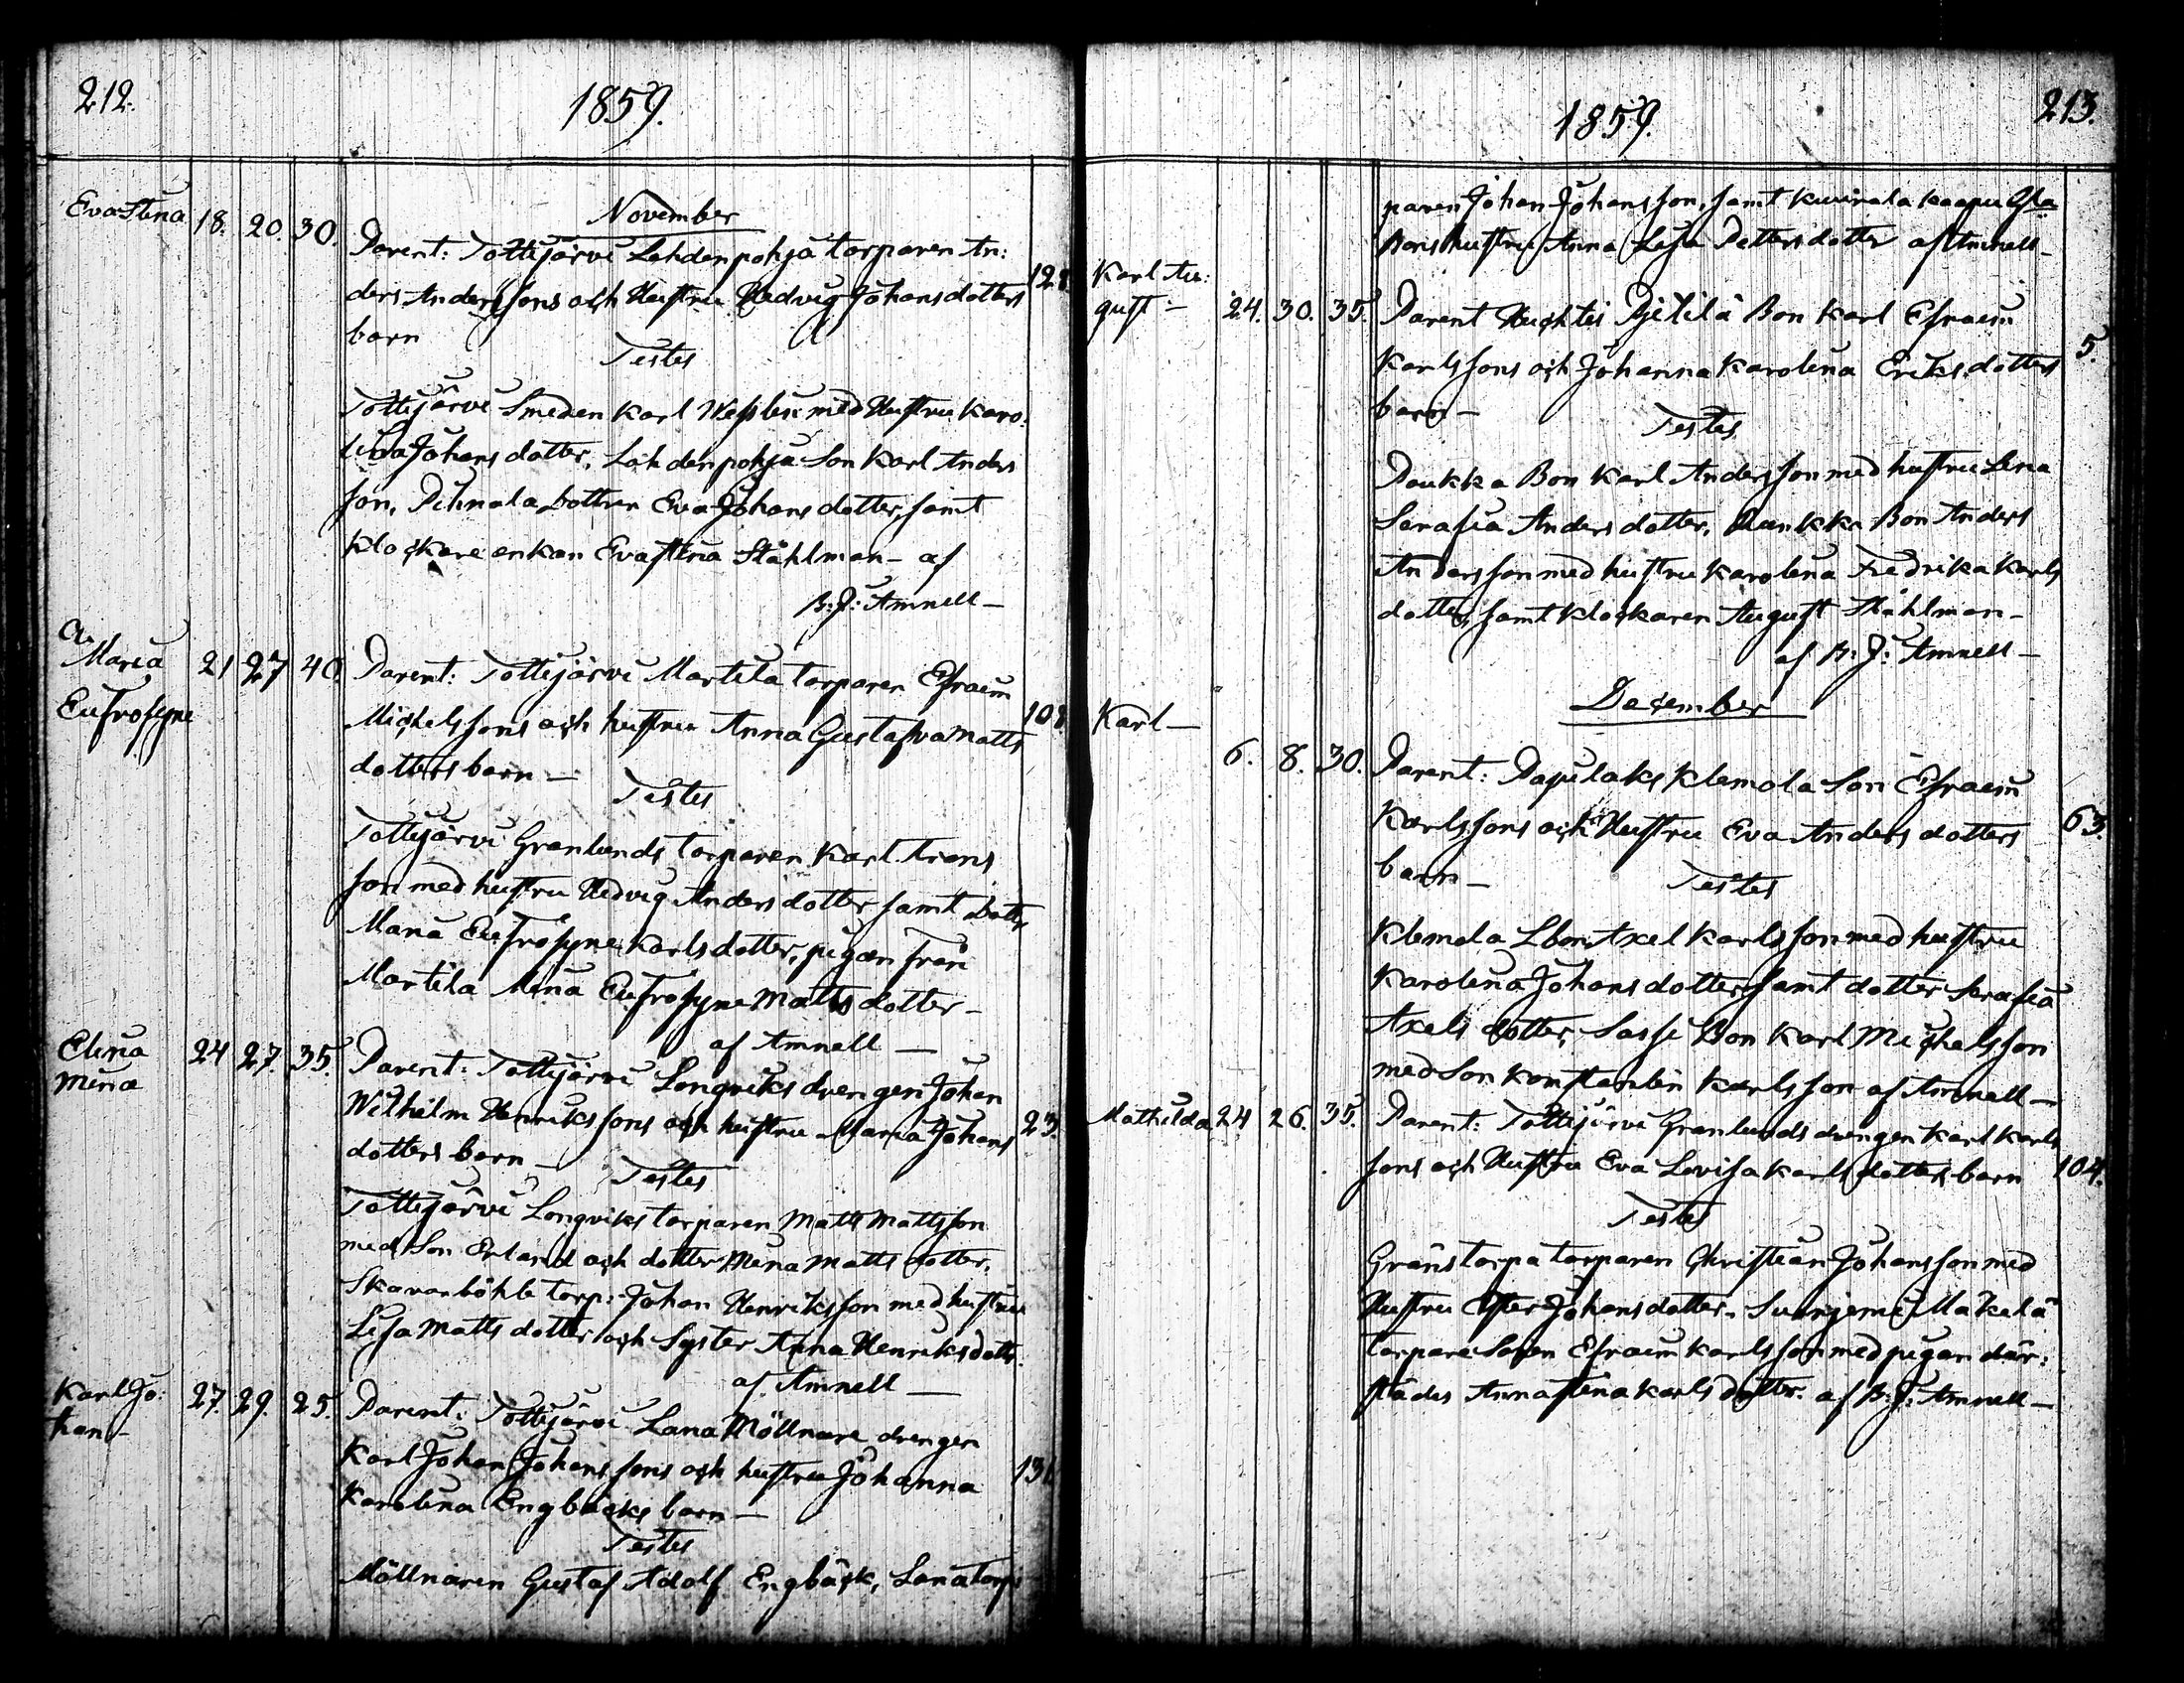 212.
1859.
November
Eva Stina 18. 20. 30. Parent: Tottijärvi Lahdenpohja torparen An:
ders Anderssons och Hustru Hedvig Johansdotters 128
barn
Testes
Tottijärvi Smeden Karl Wesslin med Hustru Karo:
lina Johansdotter, Lahdenpohja Son Karl Anders
son, Pihnala dottren Eva Johansdotter, samt
Klockare enkan Eva Stina Ståhlman - af
B: J: Amnell -
Maria 21 27 40. Parent: Tottijärvi Martila torparen Efraim
Eufrosyne Michelssons och hustru Anna Gustafva Matts 108
dotters barn -
Testes
Tottijärvi Granlunds torparen Karl Frans
son med hustru Hedvig Andersdotter samt dotter
Maria Eufrosyne Karlsdotter, pigan från
Martila Mina Eufrosyne Mattsdotter -
af Amnell -
Elina 24 27. 35. Parent: Tottijärvi Longviks drengen Johan
Mina Wilhelm Henrikssons och hustru Maria Johans 23.
dotters barn -
Testes
Tottijärvi Longviks torparen Matts Mattsson
med Son Erland och dotter Mina Mattsdotter,
Skavarböhle torp: Johan Henriksson med hustru
Lisa Mattsdotter och Syster Anna Henriksdotter
af Amnell -
Karl Jo: 27. 29. 25. Parent: Tottijärvi Lana Möllnare drengen
han - Karl Johan Johanssons och hustru Johanna 131
Karolina Engbäcks barn -
Testes
Möllnaren Gustaf Adolf Engbäck, Lana torp
1859.
213.
paren Johan Johansson, samt
Bons hustru Anna Lisa Pettersdotter af Amnell -
Karl Au:
gust - 24. 30. 35. Parent Huchtis Pjetilä Bon Karl Efraim
Karlssons och Johanna Karolina Eriksdotters 5.
barn -
Testes
Paukka Bon Karl Andersson med hustru Lena
Serafia Andersdotter, Bon Anders
Andersson med hustru Karolina Fredrika Karls
dotter, samt Klockaren August Ståhlman -
af B: J: Amnell -
December
Karl -
6. 8. 30. Parent: Papulaks Klemola Son Efraim
Karlssons och Hustru Eva Andersdotters 63.
barn -
Testes
Klemola Lbon Axel Karlsson med hustru
Karolina Johansdotter samt dotter Serafia
Axelsdotter, Sassi Bon Karl Michelsson
med Son Konstantin Karlsson af Amnell -
Mathilda 24 26. 35. Parent: Tottijärvi Granlunds drengen Karl Karls
sons och Hustru Eva Lovisa Karlsdotters barn 104.
Testes
Gränstorpa torparen Christian Johansson med
Hustru Ester Johansdotter. Mäkelä
torpare Sonen Efraim Karlsson med pigan där:
städes Anna Stina Karlsdotter. af B: J: Amnell -